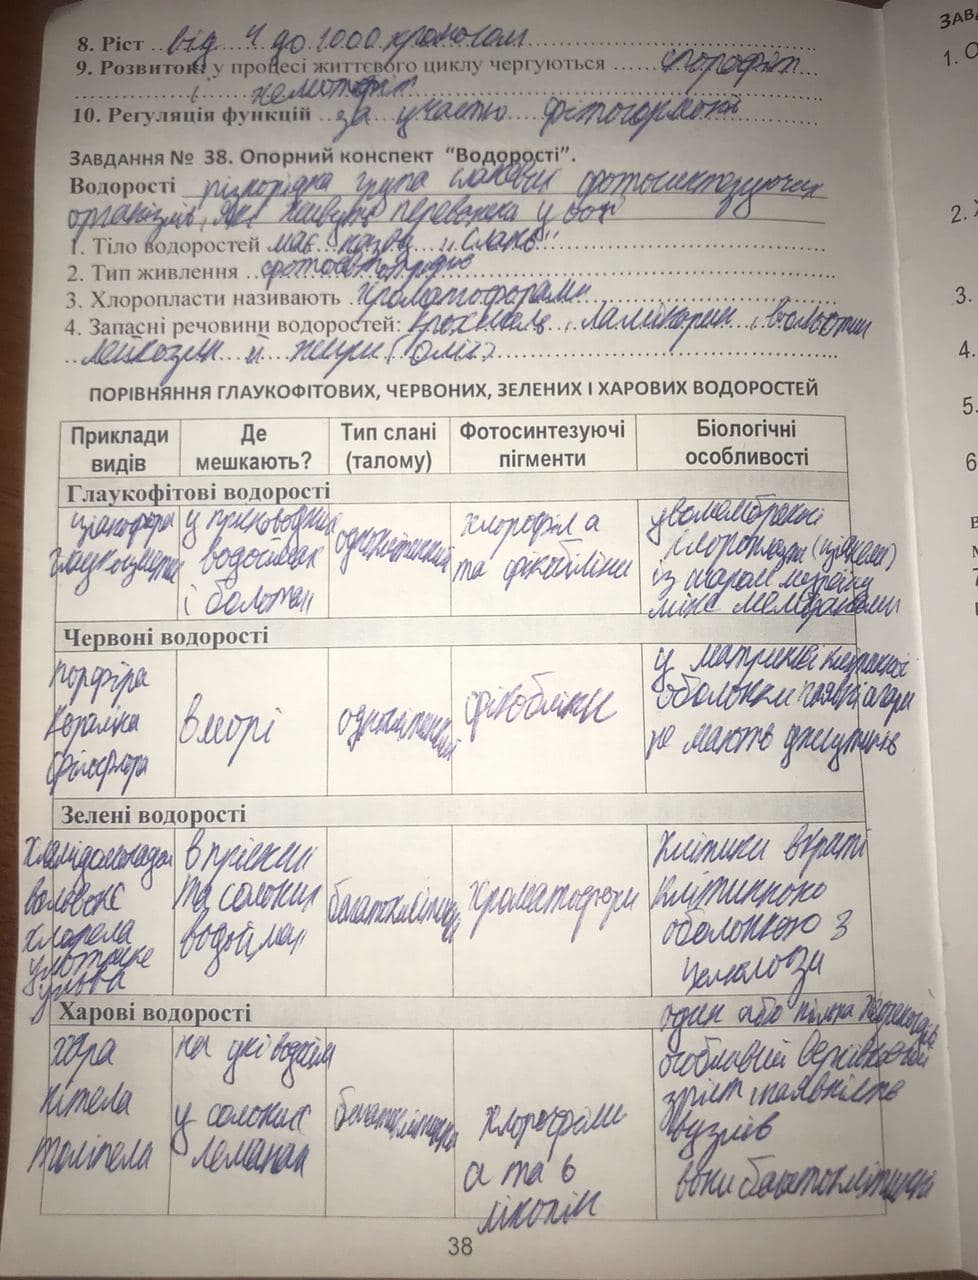 8. Ріст від 4 до 1000 хромосом
9. Розвиток: у процесі життєвого циклу чергуються спорофіт
і гаметофіт
10. Регуляція функцій за участю фітогормонів
ЗАВДАННЯ № 38. Опорний конспект "Водорості".
Водорості різнорідна група сланевих фотосинтезуючих
організмів, які живуть переважно у воді
1. Тіло водоростей має назву „слань"
2. Тип живлення фотоавтотрофне
3. Хлоропласти називають хроматофорами
4. Запасні речовини водоростей: крохмаль, ламінарин, волютин
лейкозин й жири (олії)
ПОРІВНЯННЯ ГЛАУКОФІТОВИХ, ЧЕРВОНИХ, ЗЕЛЕНИХ І ХАРОВИХ ВОДОРОСТЕЙ
Приклади видів
Де мешкають?
Тип слані (талому)
Фотосинтезуючі пігменти
Біологічні особливості
Глаукофітові водорості
ціанофора
глаукоцистис
у прісноводних
водоймах
і болотах
одноклітинний
хлорофіл а
та фікобіліни
двомембранні
хлоропласти (ціанели)
із шаром муреїну
між мембранами
Червоні водорості
порфіра
кораліна
філофора
в морі
одноклітинний
фікобіліни
у матриксі клітинної
оболонки наявні агари
не мають джгутиків
Зелені водорості
хламідомонада
вольвокс
хлорела
улотрикс
ульва
в прісних
та солоних
водоймах
багатоклітинні
хроматофори
клітини вкриті
клітинною
оболонкою з
целюлози
Харові водорості
хара
нітела
толіпела
на дні водойм
у солоних
лиманах
багатоклітинна
хлорофіли
а та b
лікопін
один або кілька
особливий верхівковий
зріст і наявність
вузлів
вони багатоклітинні
38
ЗАВД
1. О
2.
3.
4.
5.
6